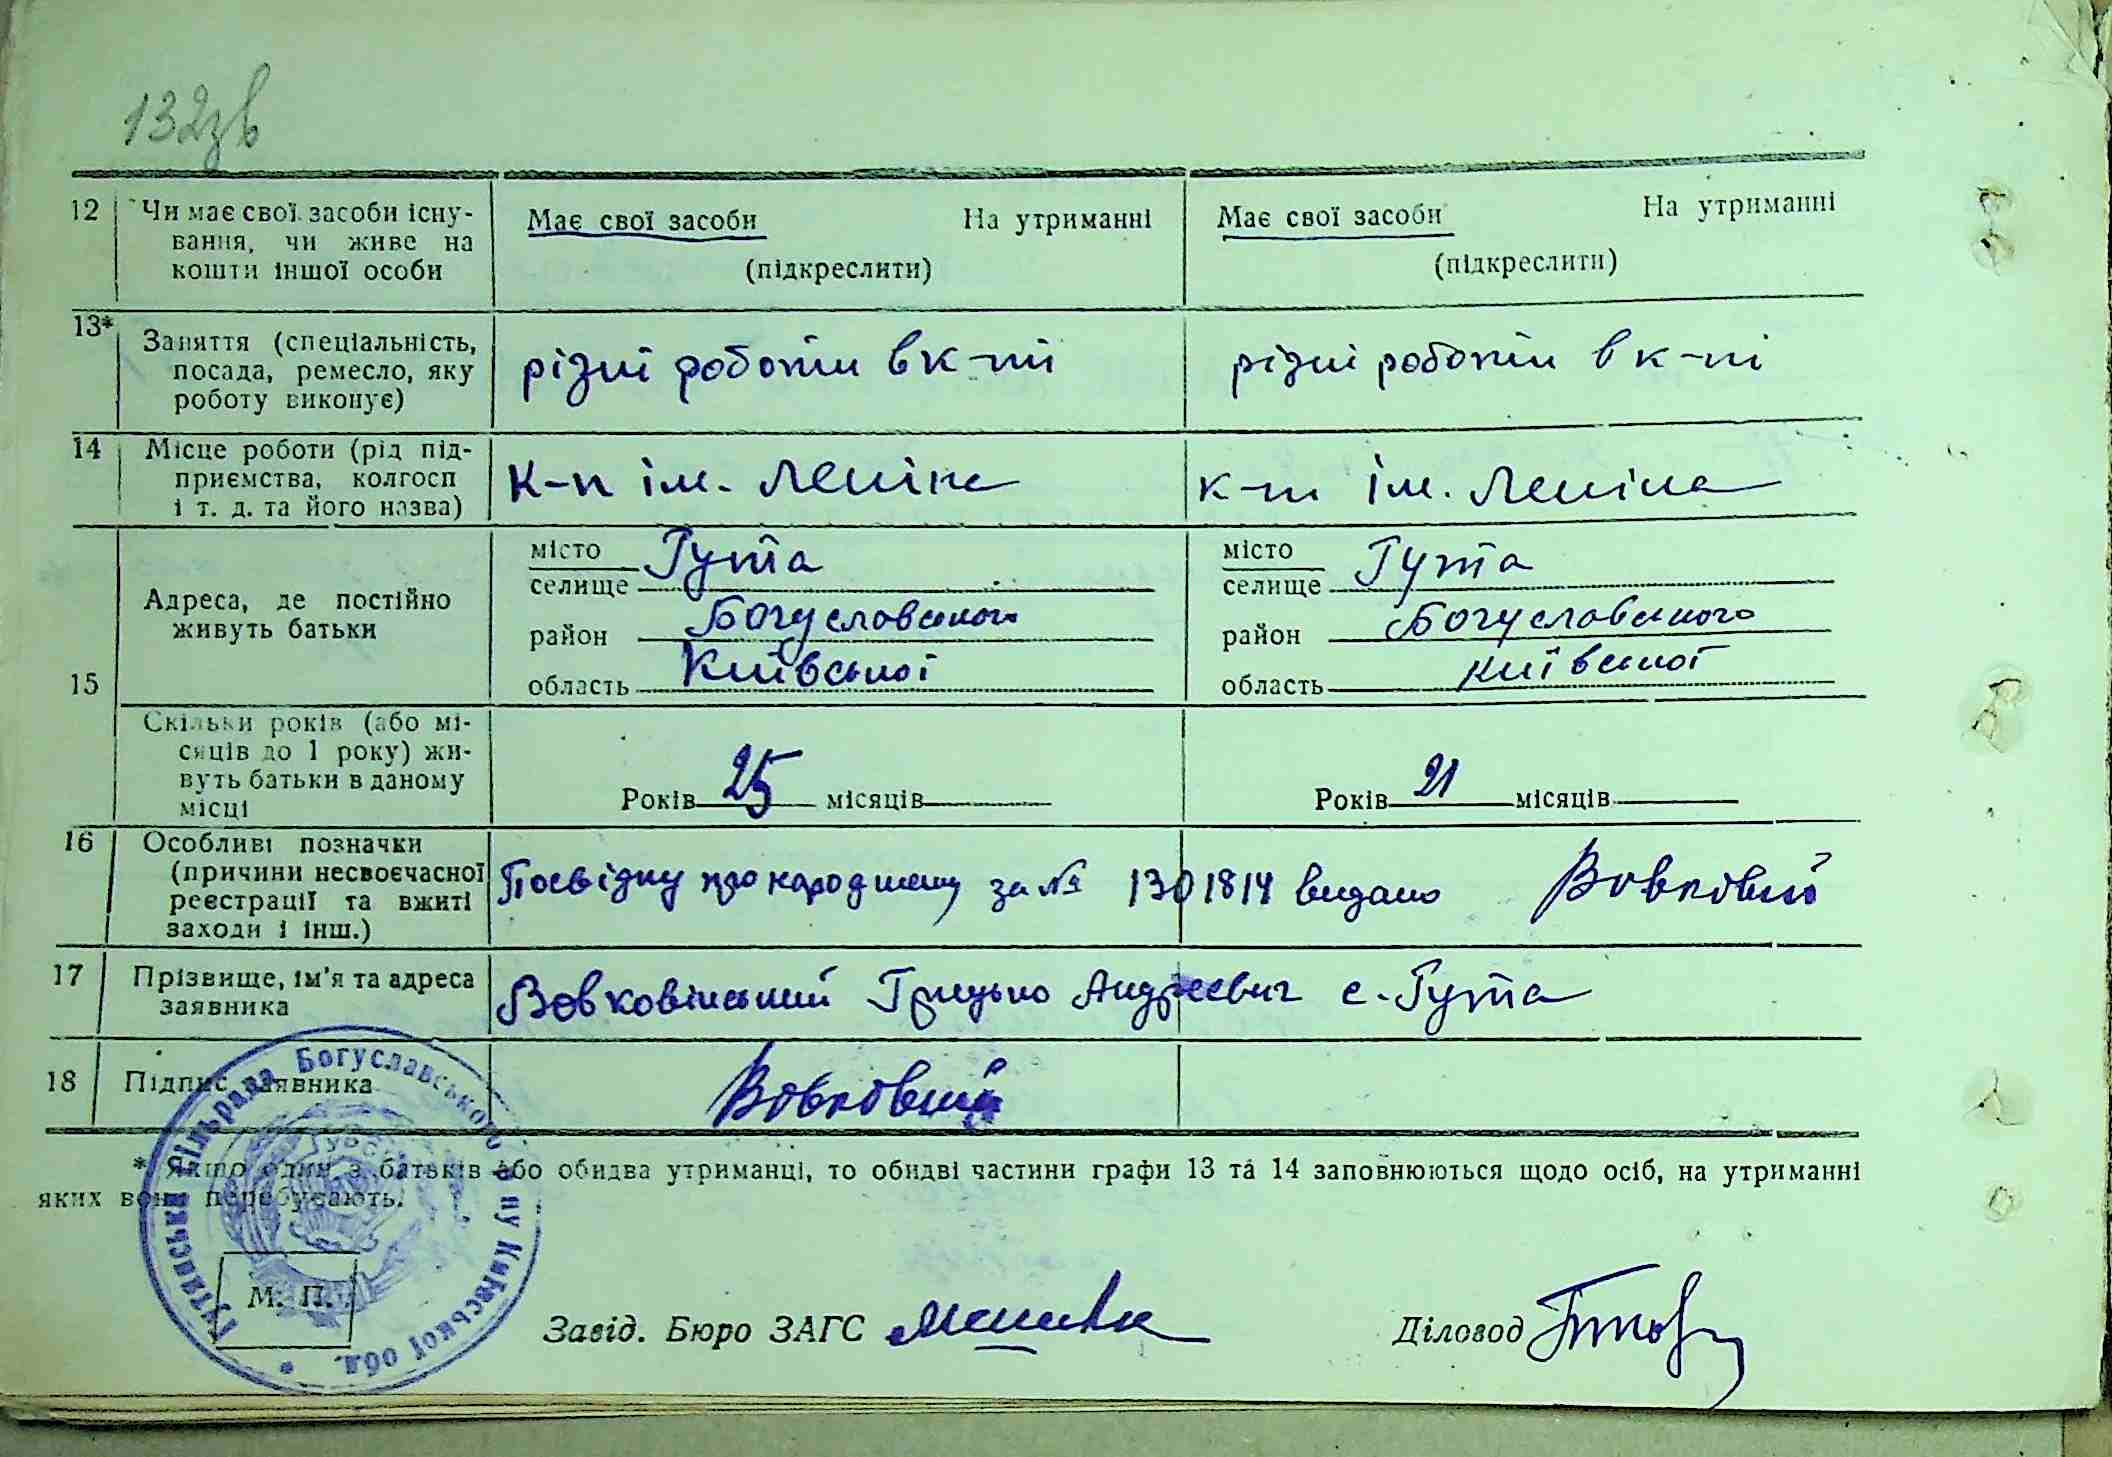 132зв
12 Чи має свої засоби існу-
вання, чи живе на
кошти іншої особи
Має свої засоби На утриманні
(підкреслити)
Має свої засоби На утриманні
(підкреслити)
13* Заняття (спеціальність,
посада, ремесло, яку
роботу виконує)
різні роботи в к-пі
різні роботи в к-пі
14 Місце роботи (рід під-
приємства, колгосп
і т. д. та його назва)
К-п ім. Леніна
к-п ім. Леніна
15 Адреса, де постійно
живуть батьки
місто
селище Гута
район Богуславського
область Київської
місто
селище Гута
район Богуславського
область Київської
Скільки років (або мі-
сяців до 1 року) жи-
вуть батьки в даному
місці
Років 25 місяців
Років 21 місяців
16 Особливі позначки
(причини несвоєчасної
реєстрації та вжиті
заходи і інш.)
Посвідку про народження за № 1301814 видано
17 Прізвище, ім'я та адреса
заявника
Вовковінський Грицько Андреєвич с. Гута
18 Підпис заявника
* Якщо один з батьків або обидва утриманці, то обидві частини графи 13 та 14 заповнюються щодо осіб, на утриманні
яких вони перебувають.
Гутянська сільрада Богуславського р-ну Київської обл.
М. П.
Завід. Бюро ЗАГС
Діловод